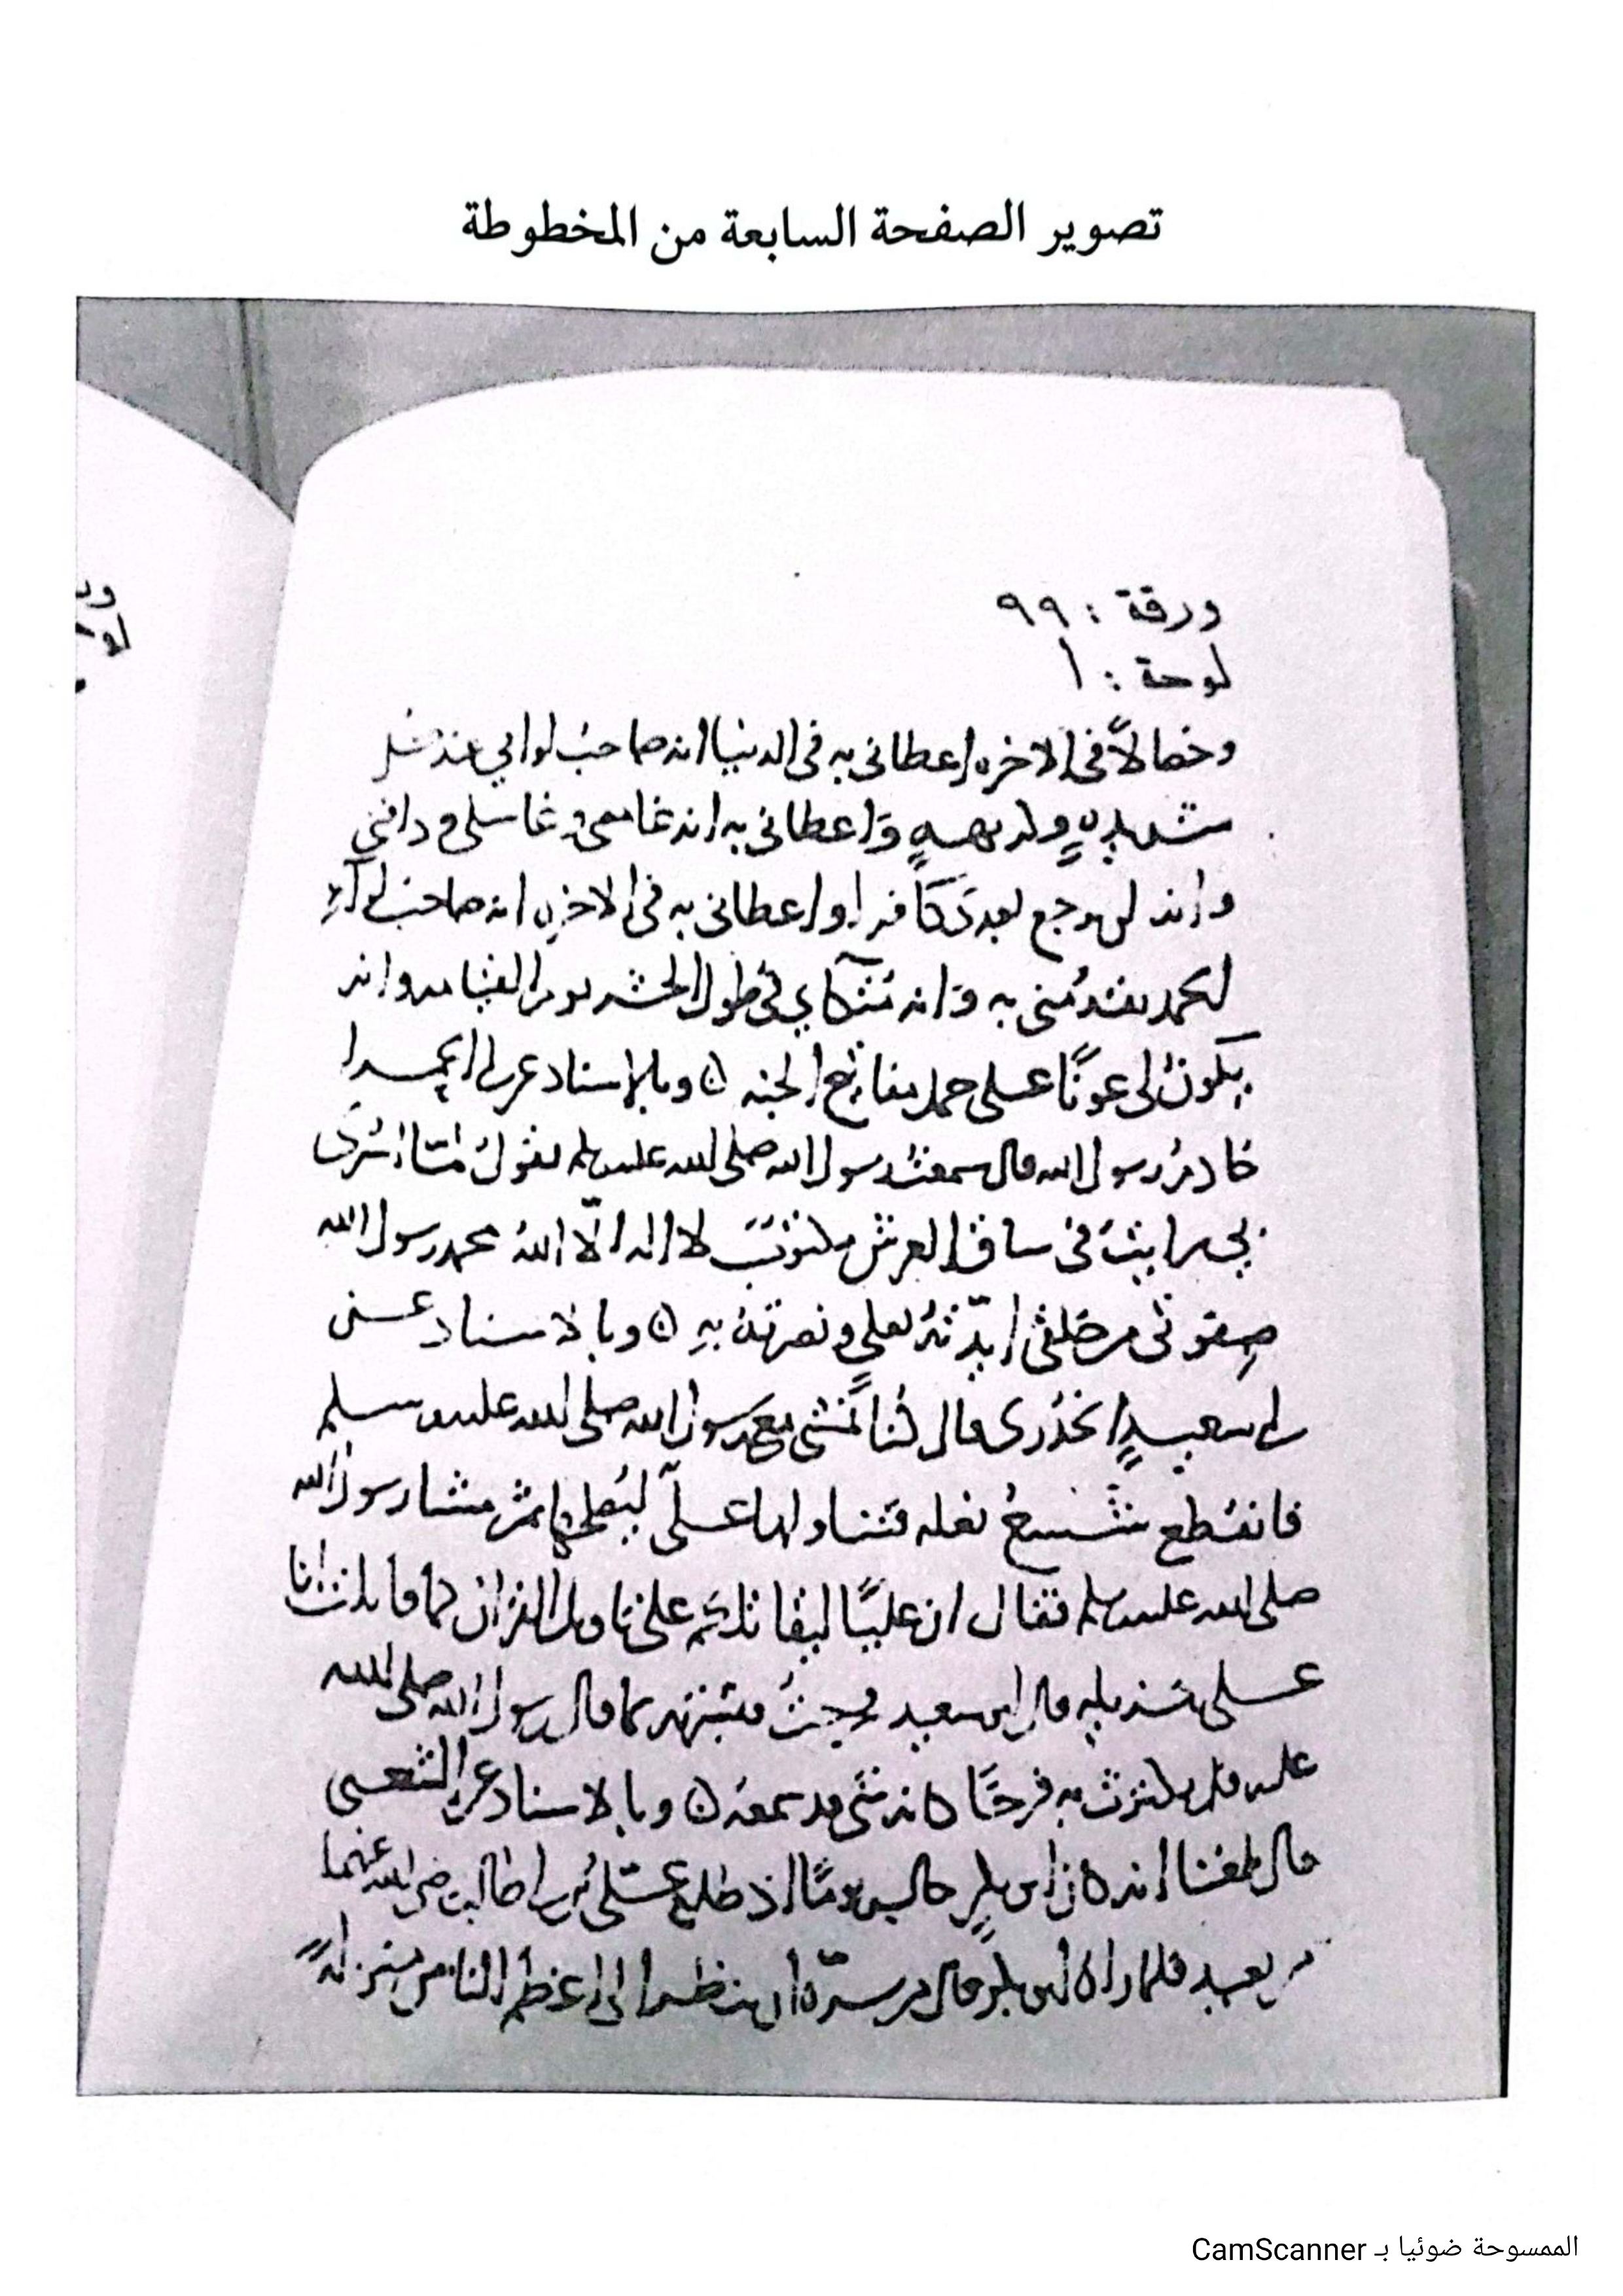 تصوير الصفحة السابعة من المخطوطة
ورقة : ٩٩
لوحة : أ
وخصالاً في الاخره اعطاني به في الدنيا انه صاحب لوائي عند كل
شديدةٍ وكريهةٍ وَاعطاني به انه غامضي وغاسلي ودافني
وانه لن يرجع بعدي كافرا واعطاني به في الاخره انه صاحب لوآء
الحمد يقدُمني به وَانه مُتّكاي في طول الحشر يوم القيامه وانه
يكونُ لي عونًا على حمل مفاتيح الجنه ۞ وبالاسناد عن ابي الحمرا
خادمُ رسول الله قال سمعتُ رسول الله صلى الله عليه وسلم يقول لمّا اسُريَ
بي رايتُ في ساق العرش مكتوبٌ لا اله الّا اللهُ محمد رسول الله
صِفوتي من خلقي ايّدتهُ بعليٍ ونصرتهُ بهِ ۞ وبالاسناد عن
ابي سعيدٍ الخُدري قال كُنا نمشي مع رسول الله صلى الله عليه وسلم
فانقطع شسعُ نعله فتناولها عليٌّ ليُصلحها ثمّ مشا رسول الله
صلى الله عليه وسلم فقال ان عليًا ليقاتلكم على تاويل القران كما قاتلت انا
على تنزيله قال ابو سعيد فجئتُ فبشّرته بما قال رسول الله صلى الله
عليه فلم يكترث به فرحًا كانه شي قد سمعهُ ۞ وبالاسناد عن الشعبي
قال بلغنا انه كان ابو بكرٍ جالس يومًا اذ طلع علي بن ابي طالب رضي الله عنهما
من بعيد فلما راه ابو بكر قال من سرّهُ ان ينظر الى اعظم الناس منزلةً
الممسوحة ضوئيا بـ CamScanner